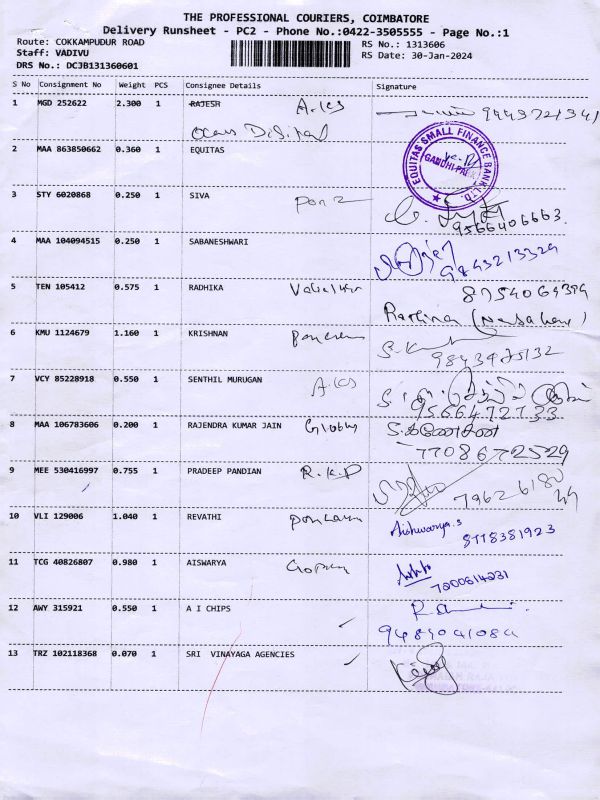 THE PROFESSIONAL COURIERS, COIMBATORE
Delivery Runsheet - PC2 - Phone No.:0422-3505555 - Page No.:1
Route: COKKAMPUDUR ROAD
RS No.: 1313606
Staff: VADIVU
RS Date: 30-Jan-2024
DRS No.: DCJB131360601
S No Consignment No Weight PCS Consignee Details Signature
1 MGD 252622 2.300 1 RAJESH 9443721341
2 MAA 863850662 0.360 1 EQUITAS
EQUITAS SMALL FINANCE BANK LTD
3 STY 6020868 0.250 1 SIVA
9566406663
4 MAA 104094515 0.250 1 SABANESHWARI
9843213329
5 TEN 105412 0.575 1 RADHIKA
6 KMU 1124679 1.160 1 KRISHNAN
9843975132
7 VCY 85228918 0.550 1 SENTHIL MURUGAN
8 MAA 106783606 0.200 1 RAJENDRA KUMAR JAIN
7708672529
9 MEE 530416997 0.755 1 PRADEEP PANDIAN R.K.P
10 VLI 129006 1.040 1 REVATHI Aishwarya.s
8118381923
11 TCG 40826807 0.980 1 AISWARYA
7200614231
12 AWY 315921 0.550 1 A I CHIPS
13 TRZ 102118368 0.070 1 SRI VINAYAGA AGENCIES